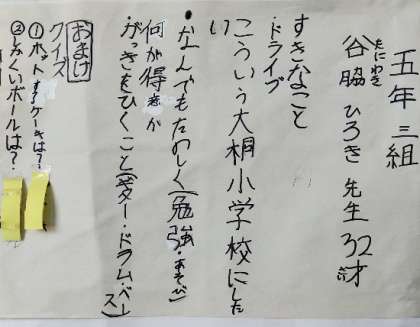 五年三組
たにわき
谷脇 ひろき 先生 32才
すきなこと
・ドライブ
こういう大桐小学校にした
い
なんでもたのしく(勉強・あそび)
何が得意か
がっきをひくこと(ギター・ドラム・ベー
ス)
おまけ
クイズ
①ホットするケーキは?
②しかくいボールは?